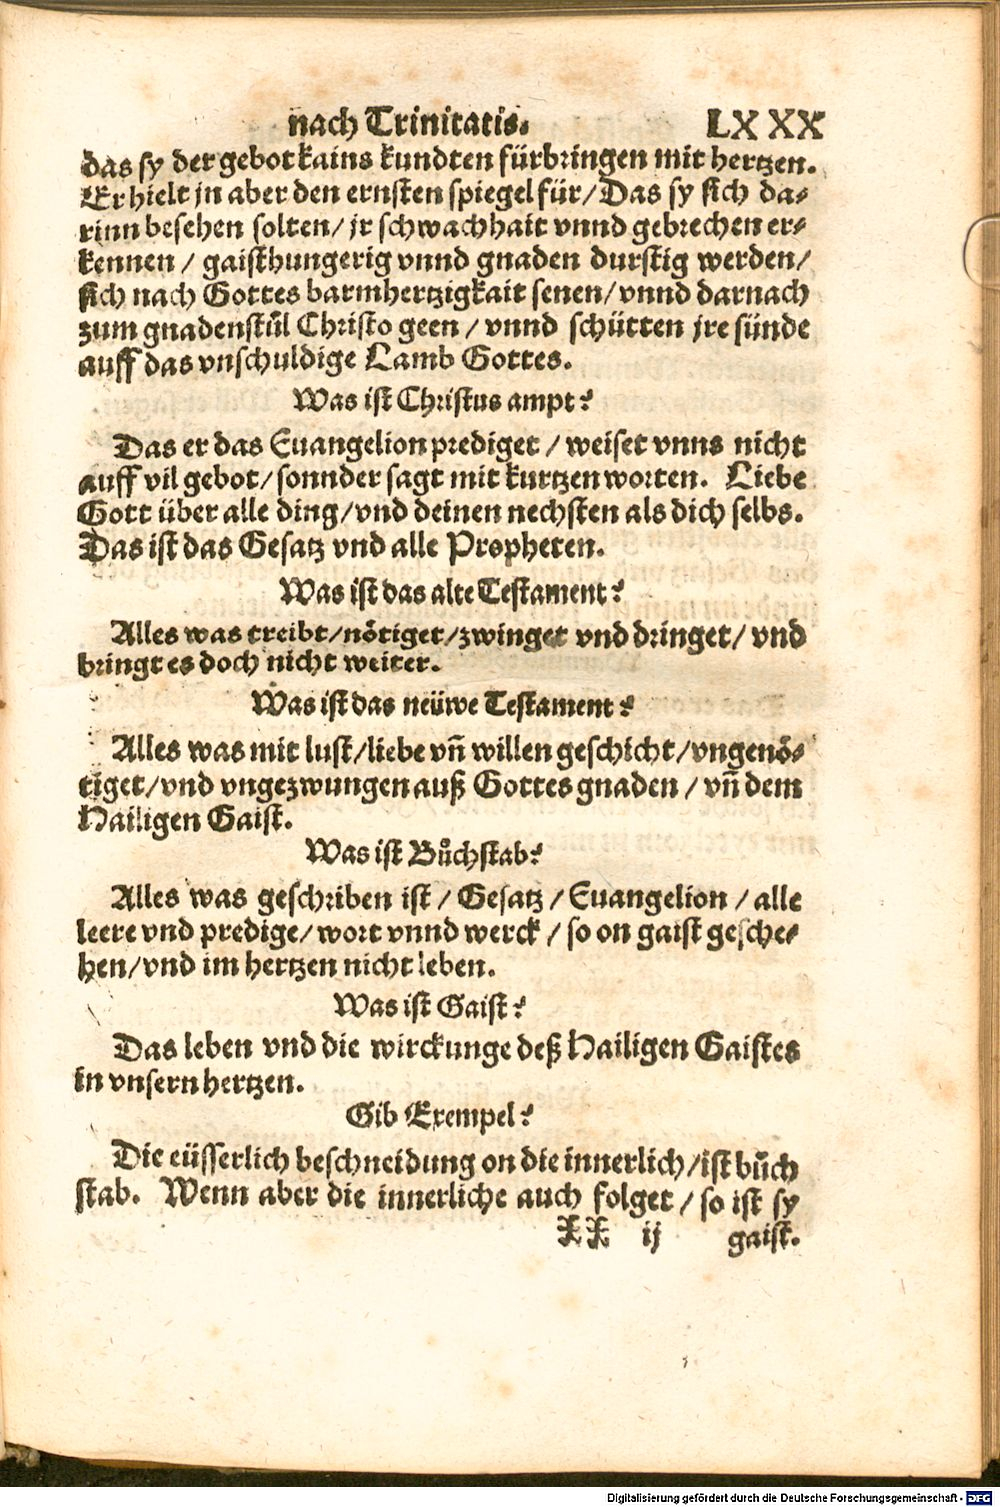 nach Trinitatis. LXXX
das sy der gebot kains kundten fürbringen mit hertzen.
Er hielt jn aber den ernsten spiegel für/Das sy sich da⸗
rinn besehen solten/ jr schwachhait vnnd gebrechen er⸗
kennen / gaisthungerig vnnd gnaden durstig werden/
sich nach Gottes barmhertzigkait senen/vnnd darnach
zum gnadenstůl Christo geen / vnnd schütten jre sünde
auff das vnschuldige Lamb Gottes.
Was ist Christus ampt?
Das er das Euangelion prediget / weiset vnns nicht
auff vil gebot/sonnder sagt mit kurtzen worten. Liebe
Gott über alle ding/vnd deinen nechsten als dich selbs.
Das ist das Gesatz vnd alle Propheten.
Was ist das alte Testament?
Alles was treibt/nötiget/zwinget vnd dringet/ vnd
bringt es doch nicht weiter.
Was ist das neüwe Testament?
Alles was mit lust/liebe vñ willen geschicht/vngenö⸗
tiget/vnd vngezwungen auß Gottes gnaden / vñ dem
Hailigen Gaist.
Was ist Bůchstab?
Alles was geschriben ist / Gesatz / Euangelion / alle
leere vnd predige/wort vnnd werck / so on gaist gesche⸗
hen/vnd im hertzen nicht leben.
Was ist Gaist?
Das leben vnd die wirckunge deß Hailigen Gaistes
in vnsern hertzen.
Gib Exempel?
Die eüsserlich beschneidung on die innerlich/ist bůch
stab. Wenn aber die innerliche auch folget / so ist sy
XX ij gaist.
Digitalisierung gefördert durch die Deutsche Forschungsgemeinschaft - DFG